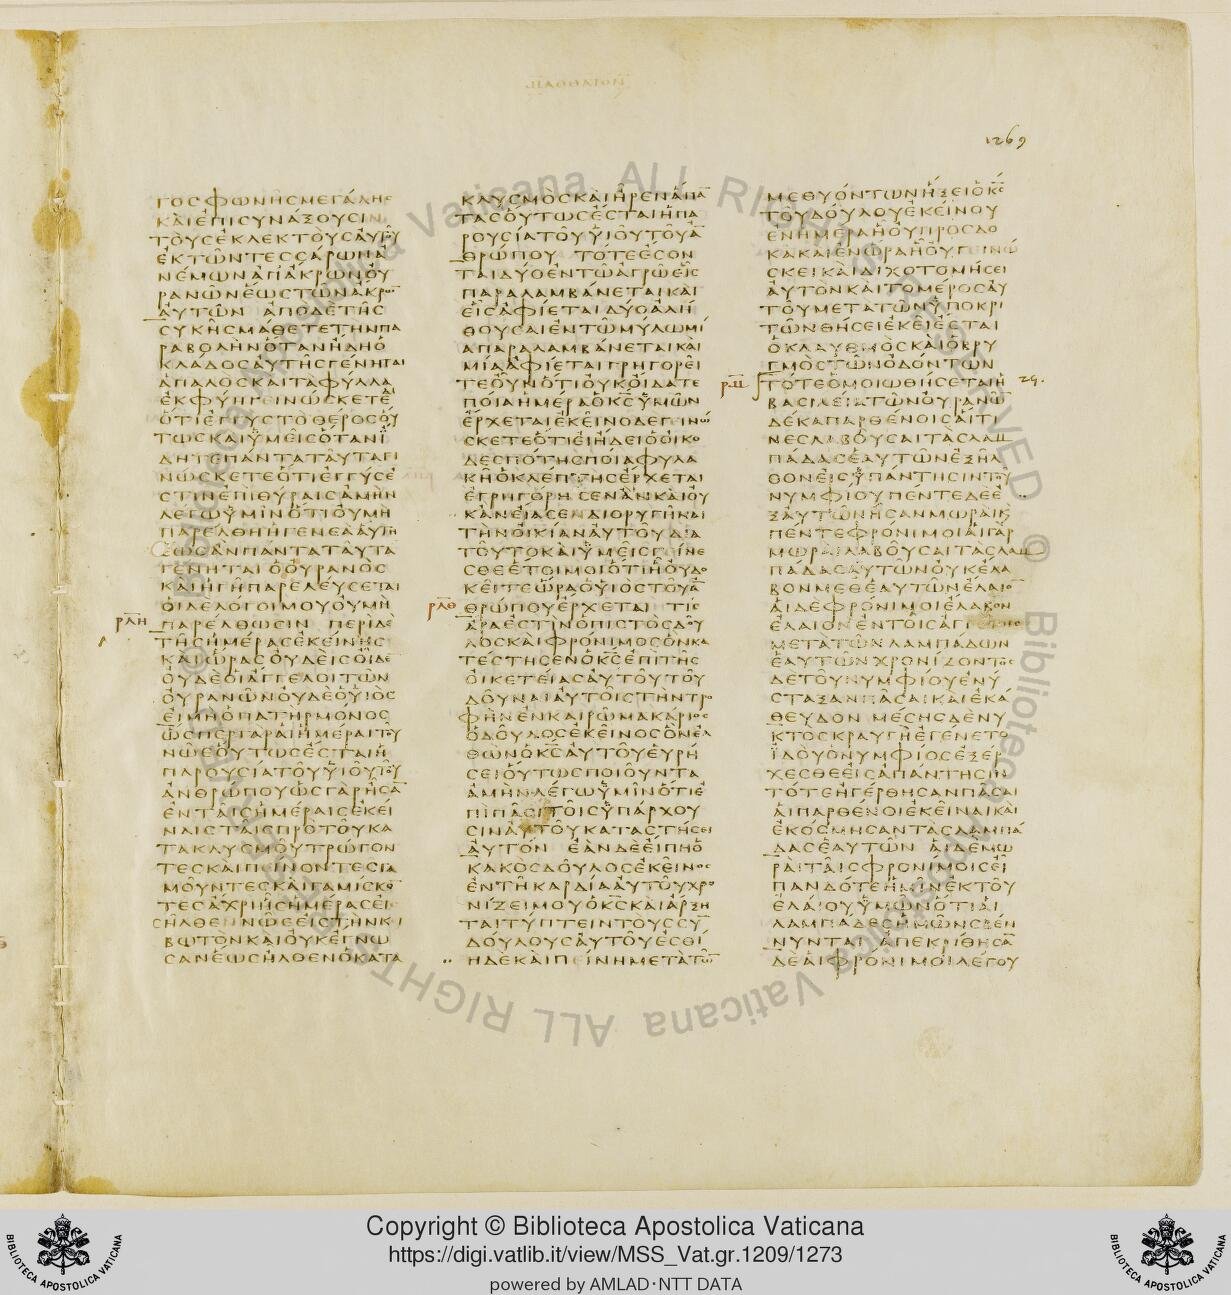 1269
ΓΟΣΦΩΝΗΣΜΕΓΑΛΗΣ
ΚΑΙΕΠΙΣΥΝΑΞΟΥΣΙΝ
ΤΟΥΣΕΚΛΕΚΤΟΥΣΑΥΤΟΥ
ΕΚΤΩΝΤΕΣΣΑΡΩΝΑ
ΝΕΜΩΝΑΠΑΚΡΩΝΟΥ
ΡΑΝΩΝΕΩΣΤΩΝΑΚΡΩ̅
ΑΥΤΩΝ ΑΠΟΔΕΤΗΣ
ΣΥΚΗΣΜΑΘΕΤΕΤΗΝΠΑ
ΡΑΒΟΛΗΝΟΤΑΝΗΔΗΟ
ΚΛΑΔΟΣΑΥΤΗΣΓΕΝΗΤΑΙ
ΑΠΑΛΟΣΚΑΙΤΑΦΥΛΛΑ
ΕΚΦΥΗΓΕΙΝΩΣΚΕΤΕ
ΟΤΙΕΓΓΥΣΤΟΘΕΡΟΣΟΥ
ΤΩΣΚΑΙΫΜΕΙΣΟΤΑΝΙ
ΔΗΤΕΠΑΝΤΑΤΑΥΤΑΓΙ
ΝΩΣΚΕΤΕΟΤΙΕΓΓΥΣΕ
ΣΤΙΝΕΠΙΘΥΡΑΙΣΑΜΗΝ
ΛΕΓΩΫΜΙΝΟΤΙΟΥΜΗ
ΠΑΡΕΛΘΗΗΓΕΝΕΑΑΥΤΗ
ΕΩΣΑΝΠΑΝΤΑΤΑΥΤΑ
ΓΕΝΗΤΑΙΟΟΥΡΑΝΟΣ
ΚΑΙΗΓΗΠΑΡΕΛΕΥΣΕΤΑΙ
ΟΙΔΕΛΟΓΟΙΜΟΥΟΥΜΗ
ΡΛΗ ΠΑΡΕΛΘΩΣΙΝ ΠΕΡΙΔΕ
ΤΗΣΗΜΕΡΑΣΕΚΕΙΝΗΣ
ΚΑΙΩΡΑΣΟΥΔΕΙΣΟΙΔΕ
ΟΥΔΕΟΙΑΓΓΕΛΟΙΤΩΝ
ΟΥΡΑΝΩΝΟΥΔΕΟΫΙΟΣ
ΕΙΜΗΟΠΑΤΗΡΜΟΝΟΣ
ΩΣΠΕΡΓΑΡΑΙΗΜΕΡΑΙΤΟΥ
ΝΩΕΟΥΤΩΣΕΣΤΑΙΗ
ΠΑΡΟΥΣΙΑΤΟΥΫΙΟΥΤΟΥ
ΑΝΘΡΩΠΟΥΩΣΓΑΡΗΣΑ̅
ΕΝΤΑΙΣΗΜΕΡΑΙΣΕΚΕΙ
ΝΑΙΣΤΑΙΣΠΡΟΤΟΥΚΑ
ΤΑΚΛΥΣΜΟΥΤΡΩΓΟΝ
ΤΕΣΚΑΙΠΕΙΝΟΝΤΕΣΓΑ
ΜΟΥΝΤΕΣΚΑΙΓΑΜΙΣΚΟ̅
ΤΕΣΑΧΡΙΗΣΗΜΕΡΑΣΕΙΣ
ΗΛΘΕΝΝΩΕΕΙΣΤΗΝΚΙ
ΒΩΤΟΝΚΑΙΟΥΚΕΓΝΩ
ΣΑΝΕΩΣΗΛΘΕΝΟΚΑΤΑ
ΚΛΥΣΜΟΣΚΑΙΗΡΕΝΑΠΑ̅
ΤΑΣΟΥΤΩΣΕΣΤΑΙΗΠΑ
ΡΟΥΣΙΑΤΟΥΫΙΟΥΤΟΥΑ̅
ΘΡΩΠΟΥ ΤΟΤΕΕΣΟΝ
ΤΑΙΔΥΟΕΝΤΩΑΓΡΩΕΙΣ
ΠΑΡΑΛΑΜΒΑΝΕΤΑΙΚΑΙ
ΕΙΣΑΦΙΕΤΑΙΔΥΟΑΛΗ
ΘΟΥΣΑΙΕΝΤΩΜΥΛΩΜΙ
ΑΠΑΡΑΛΑΜΒΑΝΕΤΑΙΚΑΙ
ΜΙΑΑΦΙΕΤΑΙΓΡΗΓΟΡΕΙ
ΤΕΟΥΝΟΤΙΟΥΚΟΙΔΑΤΕ
ΠΟΙΑΗΜΕΡΑΟΚ̅Σ̅ΫΜΩΝ
ΕΡΧΕΤΑΙΕΚΕΙΝΟΔΕΓΕΙΝΩ
ΣΚΕΤΕΟΤΙΕΙΗΔΕΙΟΟΙΚΟ
ΔΕΣΠΟΤΗΣΠΟΙΑΦΥΛΑ
ΚΗΟΚΛΕΠΤΗΣΕΡΧΕΤΑΙ
ΕΓΡΗΓΟΡΗΣΕΝΑΝΚΑΙΟΥ
ΚΑΝΕΙΑΣΕΝΔΙΟΡΥΓΗΝΑΙ
ΤΗΝΟΙΚΙΑΝΑΥΤΟΥΔΙΑ
ΤΟΥΤΟΚΑΙΫΜΕΙΣΓΕΙΝΕ
ΣΘΕΕΤΟΙΜΟΙΟΤΙΗΟΥΔΟ
ΚΕΙΤΕΩΡΑΟΫΙΟΣΤΟΥΑ̅
ΡΛΘ ΘΡΩΠΟΥΕΡΧΕΤΑΙ ΤΙΣ
ΑΡΑΕΣΤΙΝΟΠΙΣΤΟΣΔΟΥ
ΛΟΣΚΑΙΦΡΟΝΙΜΟΣΟΝΚΑ
ΤΕΣΤΗΣΕΝΟΚ̅Σ̅ΕΠΙΤΗΣ
ΟΙΚΕΤΕΙΑΣΑΥΤΟΥΤΟΥ
ΔΟΥΝΑΙΑΥΤΟΙΣΤΗΝΤΡΟ
ΦΗΝΕΝΚΑΙΡΩΜΑΚΑΡΙΟΣ
ΟΔΟΥΛΟΣΕΚΕΙΝΟΣΟΝΕΛ
ΘΩΝΟΚ̅Σ̅ΑΥΤΟΥΕΥΡΗ
ΣΕΙΟΥΤΩΣΠΟΙΟΥΝΤΑ
ΑΜΗΝΛΕΓΩΫΜΙΝΟΤΙΕ
ΠΙΠΑΣΙΤΟΙΣΫΠΑΡΧΟΥ
ΣΙΝΑΥΤΟΥΚΑΤΑΣΤΗΣΕΙ
ΑΥΤΟΝ ΕΑΝΔΕΕΙΠΗΟ
ΚΑΚΟΣΔΟΥΛΟΣΕΚΕΙΝΟΣ
ΕΝΤΗΚΑΡΔΙΑΑΥΤΟΥΧΡΟ
ΝΙΖΕΙΜΟΥΟΚ̅Σ̅ΚΑΙΑΡΞΗ
ΤΑΙΤΥΠΤΕΙΝΤΟΥΣΣΥ̅
ΔΟΥΛΟΥΣΑΥΤΟΥΕΣΘΙ
ΗΔΕΚΑΙΠΕΙΝΗΜΕΤΑΤΩ̅
ΜΕΘΥΟΝΤΩΝΗΞΕΙΟΚ̅Σ̅
ΤΟΥΔΟΥΛΟΥΕΚΕΙΝΟΥ
ΕΝΗΜΕΡΑΗΟΥΠΡΟΣΔΟ
ΚΑΚΑΙΕΝΩΡΑΗΟΥΓΕΙΝΩ
ΣΚΕΙΚΑΙΔΙΧΟΤΟΜΗΣΕΙ
ΑΥΤΟΝΚΑΙΤΟΜΕΡΟΣΑΥ
ΤΟΥΜΕΤΑΤΩΝΫΠΟΚΡΙ
ΤΩΝΘΗΣΕΙΕΚΕΙΕΣΤΑΙ
ΟΚΛΑΥΘΜΟΣΚΑΙΟΒΡΥ
ΓΜΟΣΤΩΝΟΔΟΝΤΩΝ
ΡΜ ΤΟΤΕΟΜΟΙΩΘΗΣΕΤΑΙΗ
ΒΑΣΙΛΕΙΑΤΩΝΟΥΡΑΝΩ̅
ΔΕΚΑΠΑΡΘΕΝΟΙΣΑΙΤΙ
ΝΕΣΛΑΒΟΥΣΑΙΤΑΣΛΑΜ
ΠΑΔΑΣΕΑΥΤΩΝΕΞΗΛ
ΘΟΝΕΙΣΫΠΑΝΤΗΣΙΝΤΟΥ
ΝΥΜΦΙΟΥΠΕΝΤΕΔΕΕ
ΞΑΥΤΩΝΗΣΑΝΜΩΡΑΙΚ
ΠΕΝΤΕΦΡΟΝΙΜΟΙΑΙΓΑΡ
ΜΩΡΑΙΛΑΒΟΥΣΑΙΤΑΣΛΑΜ
ΠΑΔΑΣΑΥΤΩΝΟΥΚΕΛΑ
ΒΟΝΜΕΘΕΑΥΤΩΝΕΛΑΙΟ̅
ΑΙΔΕΦΡΟΝΙΜΟΙΕΛΑΒΟΝ
ΕΛΑΙΟΝΕΝΤΟΙΣΑΓΓΕΙΟΙΣ
ΜΕΤΑΤΩΝΛΑΜΠΑΔΩΝ
ΕΑΥΤΩΝΧΡΟΝΙΖΟΝΤΟΣ
ΔΕΤΟΥΝΥΜΦΙΟΥΕΝΥ
ΣΤΑΞΑΝΠΑΣΑΙΚΑΙΕΚΑ
ΘΕΥΔΟΝ ΜΕΣΗΣΔΕΝΥ
ΚΤΟΣΚΡΑΥΓΗΕΓΕΝΕΤΟ
ΙΔΟΥΟΝΥΜΦΙΟΣΕΞΕΡ
ΧΕΣΘΕΕΙΣΑΠΑΝΤΗΣΙΝ
ΤΟΤΕΗΓΕΡΘΗΣΑΝΠΑΣΑΙ
ΑΙΠΑΡΘΕΝΟΙΕΚΕΙΝΑΙΚΑΙ
ΕΚΟΣΜΗΣΑΝΤΑΣΛΑΜΠΑ
ΔΑΣΕΑΥΤΩΝ ΑΙΔΕΜΩ
ΡΑΙΤΑΙΣΦΡΟΝΙΜΟΙΣΕΙ
ΠΑΝΔΟΤΕΗΜΙΝΕΚΤΟΥ
ΕΛΑΙΟΥΫΜΩΝΟΤΙΑΙ
ΛΑΜΠΑΔΕΣΗΜΩΝΣΒΕΝ
ΝΥΝΤΑΙ ΑΠΕΚΡΙΘΗΣΑ̅
ΔΕΑΙΦΡΟΝΙΜΟΙΛΕΓΟΥ
Copyright © Biblioteca Apostolica Vaticana
https://digi.vatlib.it/view/MSS_Vat.gr.1209/1273
powered by AMLAD·NTT DATA
BIBLIOTECA APOSTOLICA VATICANA
BIBLIOTECA APOSTOLICA VATICANA